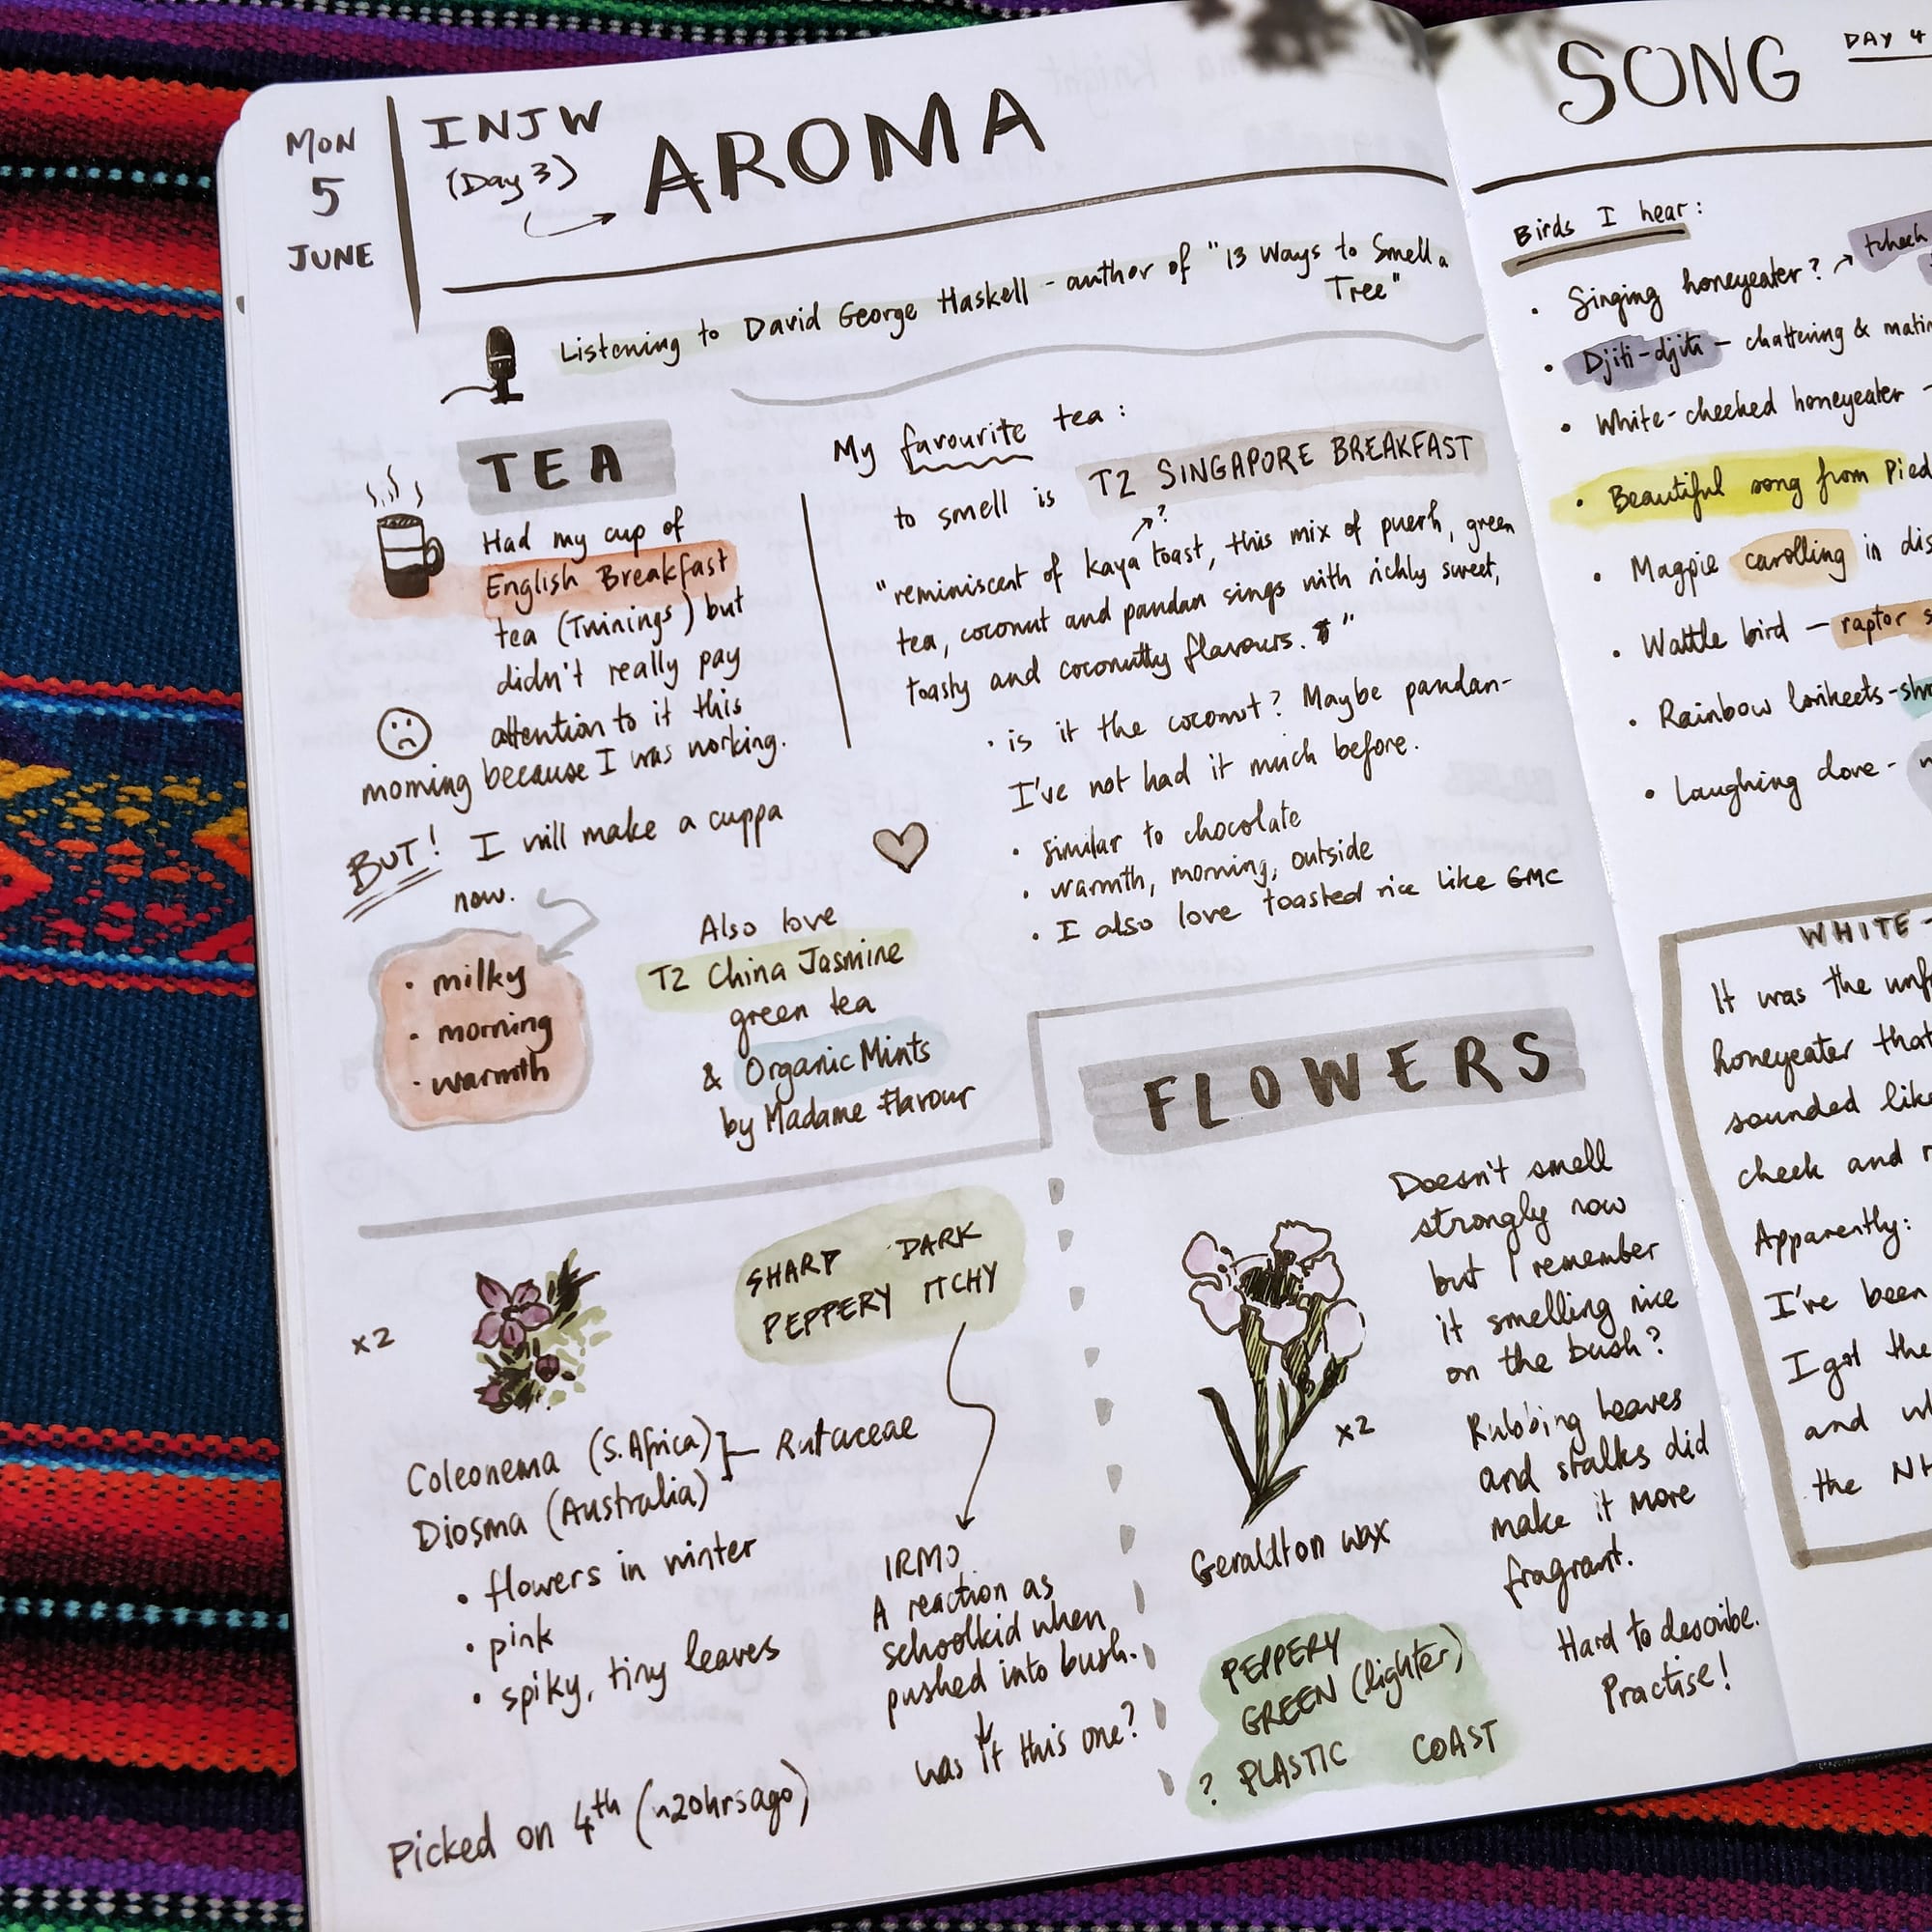 MON
5
JUNE
INJW
(Day 3)
AROMA
Listening to David George Haskell - author of "13 Ways to Smell a
Tree"
TEA
Had my cup of
English Breakfast
tea (Twinings) but
didn't really pay
attention to it this
morning because I was working.
BUT! I will make a cuppa
now.
• milky
• morning
• warmth
My favourite tea:
to smell is T2 SINGAPORE BREAKFAST
?
"reminiscent of kaya toast, this mix of puerh, green
tea, coconut and pandan sings with richly sweet,
toasty and coconutty flavours."
• is it the coconut? Maybe pandan-
I've not had it much before.
• similar to chocolate
• warmth, morning, outside
• I also love toasted rice like GMC
Also love
T2 China Jasmine
green tea
& Organic Mints
by Madame Flavour
x2
SHARP DARK
PEPPERY ITCHY
Coleonema (S. Africa)
Diosma (Australia)
Rutaceae
• flowers in winter
• pink
• spiky, tiny leaves
Picked on 4th (~20hrs ago)
A reaction as
schoolkid when
pushed into bush.
was it this one?
FLOWERS
Doesn't smell
strongly now
but I remember
it smelling nice
on the bush?
Rubbing leaves
and stalks did
make it more
fragrant.
Hard to describe.
Practise!
x2
Geraldton wax
PEPPERY
GREEN (lighter)
? PLASTIC COAST
SONG
DAY 4
Birds I hear:
• Singing honeyeater? tcheck
• Djiti-djiti - chattering &
• White-cheeked honeyeater -
• Beautiful song from Pied
• Magpie carolling in
• Wattle bird - raptor
• Rainbow lorikeets -
• Laughing dove -
WHITE-
It was the
honeyeater that
sounded like
cheek and
Apparently:
I've been
I got the
and
the